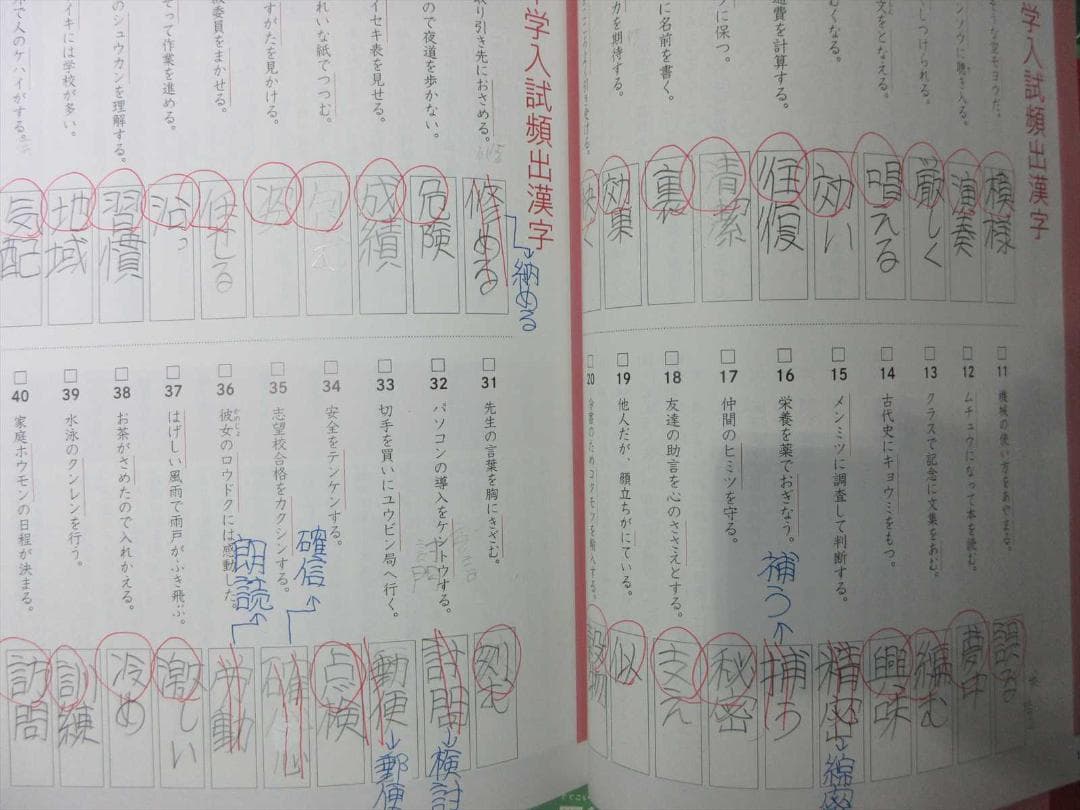 学入試頻出漢字
ンソウに聴き入る。
しつけられる。
文をとなえる。
くなる。
通費を計算する。
に保つ。
に名前を書く。
力を期待する。
模様
演奏
厳しく
唱える
効い
往復
清潔
裏
効果
11 機械の使い方をあやまる。
12 ムチュウになって本を読む。
13 クラスで記念に文集をあむ。
14 古代史にキョウミをもつ。
15 メンミツに調査して判断する。
16 栄養を薬でおぎなう。
17 仲間のヒミツを守る。
18 友達の助言を心のささえとする。
19 他人だが、顔立ちがにている。
20
誤る
夢中
編む
興味
精密
→綿密
捕う
→補う
秘密
支え
似
学入試頻出漢字
取り引き先におさめる。
ので夜道を歩かない。
イセキ表を見せる。
れいな紙でつつむ。
すがたを見かける。
委員をまかせる。
そって作業を進める。
のシュウカンを理解する。
イキには学校が多い。
で人のケハイがする。
修める
→納める
危険
成績
包え
姿
任せる
沿っ
習慣
地域
気配
31 先生の言葉を胸にきざむ。
32 パソコンの導入をケントウする。
33 切手を買いにユウビン局へ行く。
34 安全をテンケンする。
35 志望校合格をカクシンする。
36 彼女のロウドクには感動した。
かのじょ
37 はげしい風雨で雨戸がふき飛ぶ。
38 お茶がさめたので入れかえる。
39 水泳のクンレンを行う。
40 家庭ホウモンの日程が決まる。
刻む
→検討
動便
→郵便
点検
確心
→確信
労動
→朗読
激しい
冷め
訓練
訪問